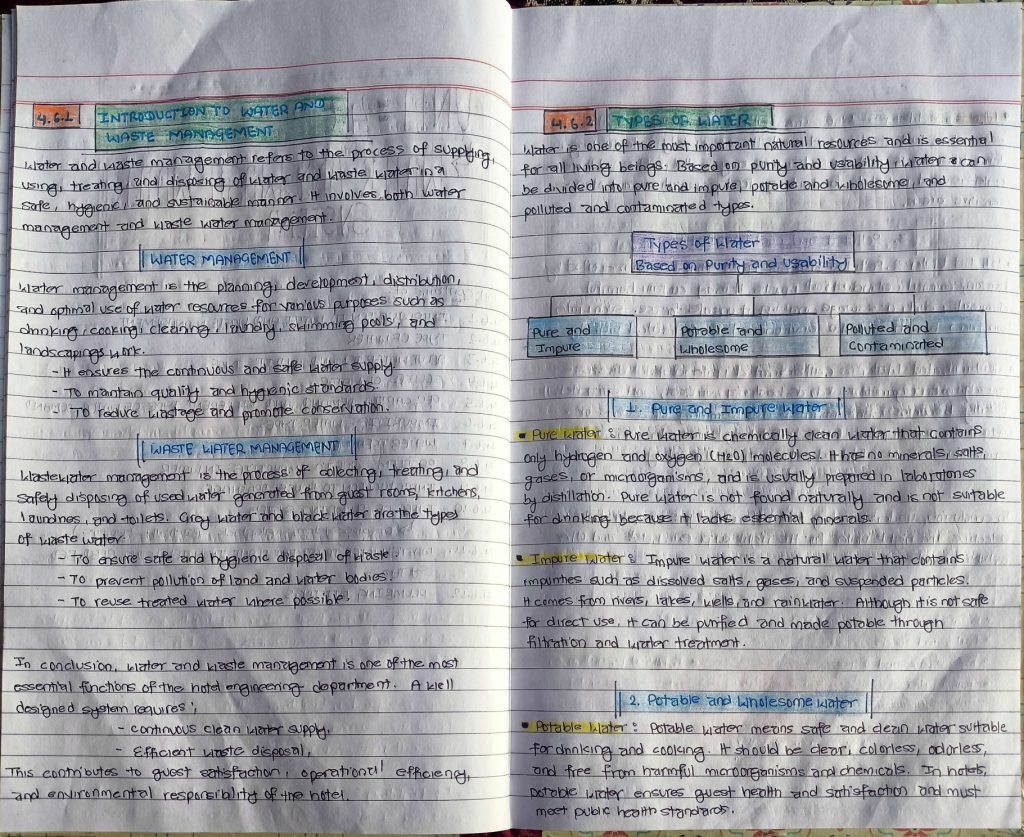 4.6.1 INTRODUCTION TO WATER AND
WASTE MANAGEMENT
Water and waste management refers to the process of supplying,
using, treating, and disposing of water and waste water in a
safe, hygienic, and sustaicable manner. It involves both water
management and waste water management.
WATER MANAGEMENT
Water management is the planning, development, distribution,
and optimal use of water resources for various purposes such as
drinking, cooking, cleaning, laundry, swimming pools, and
landscapings work.
- It ensures the continuous and safe water supply.
- To mantain quality and hygienic standards.
- To reduce wastage and promote conservation.
WASTE WATER MANAGEMENT
Wastewater management is the process of collecting, treating, and
safely disposing of used water generated from guest rooms, kitchens,
laundries, and toilets. Grey water and black water are the types
of waste water.
- To ensure safe and hygienic disposal of waste.
- To prevent pollution of land and water bodies.
- To reuse treated water where possible.
In conclusion, water and waste management is one of the most
essential functions of the hotel engineering department. A well
designed system requires;
- continuous clean water supply,
- Efficient waste disposal,
This contributes to guest satisfaction, operational efficiency,
and environmental responsibility of the hotel.
4.6.2 TYPES OF WATER
Water is one of the most important natural resources and is essential
for all living beings. Based on purity and usability, water can
be divided into pure and impure, potable and wholesome, and
polluted and contaminated types.
Types of Water
Based on Purity and Usability
Pure and
Impure
Potable and
Wholesome
Polluted and
Contaminated
1. Pure and Impure Water
Pure Water : Pure water is chemically clean water that contains
only hydrogen and oxygen (H2O) molecules. It has no minerals, salts,
gases, or microorganisms, and is usually prepared in laboratories
by distillation. Pure water is not found naturally and is not suitable
for drinking because it lacks essential minerals.
Impure Water : Impure water is a natural water that contains
impurities such as dissolved salts, gases, and suspended particles.
It comes from rivers, lakes, wells, and rainwater. Although it is not safe
for direct use, it can be purified and made potable through
filtration and water treatment.
2. Potable and Wholesome Water
Potable Water : Potable water means safe and clean water suitable
for drinking and cooking. It should be clear, colorless, odorless,
and free from harmful microorganisms and chemicals. In hotels,
potable water ensures guest health and satisfaction and must
meet public health standards.